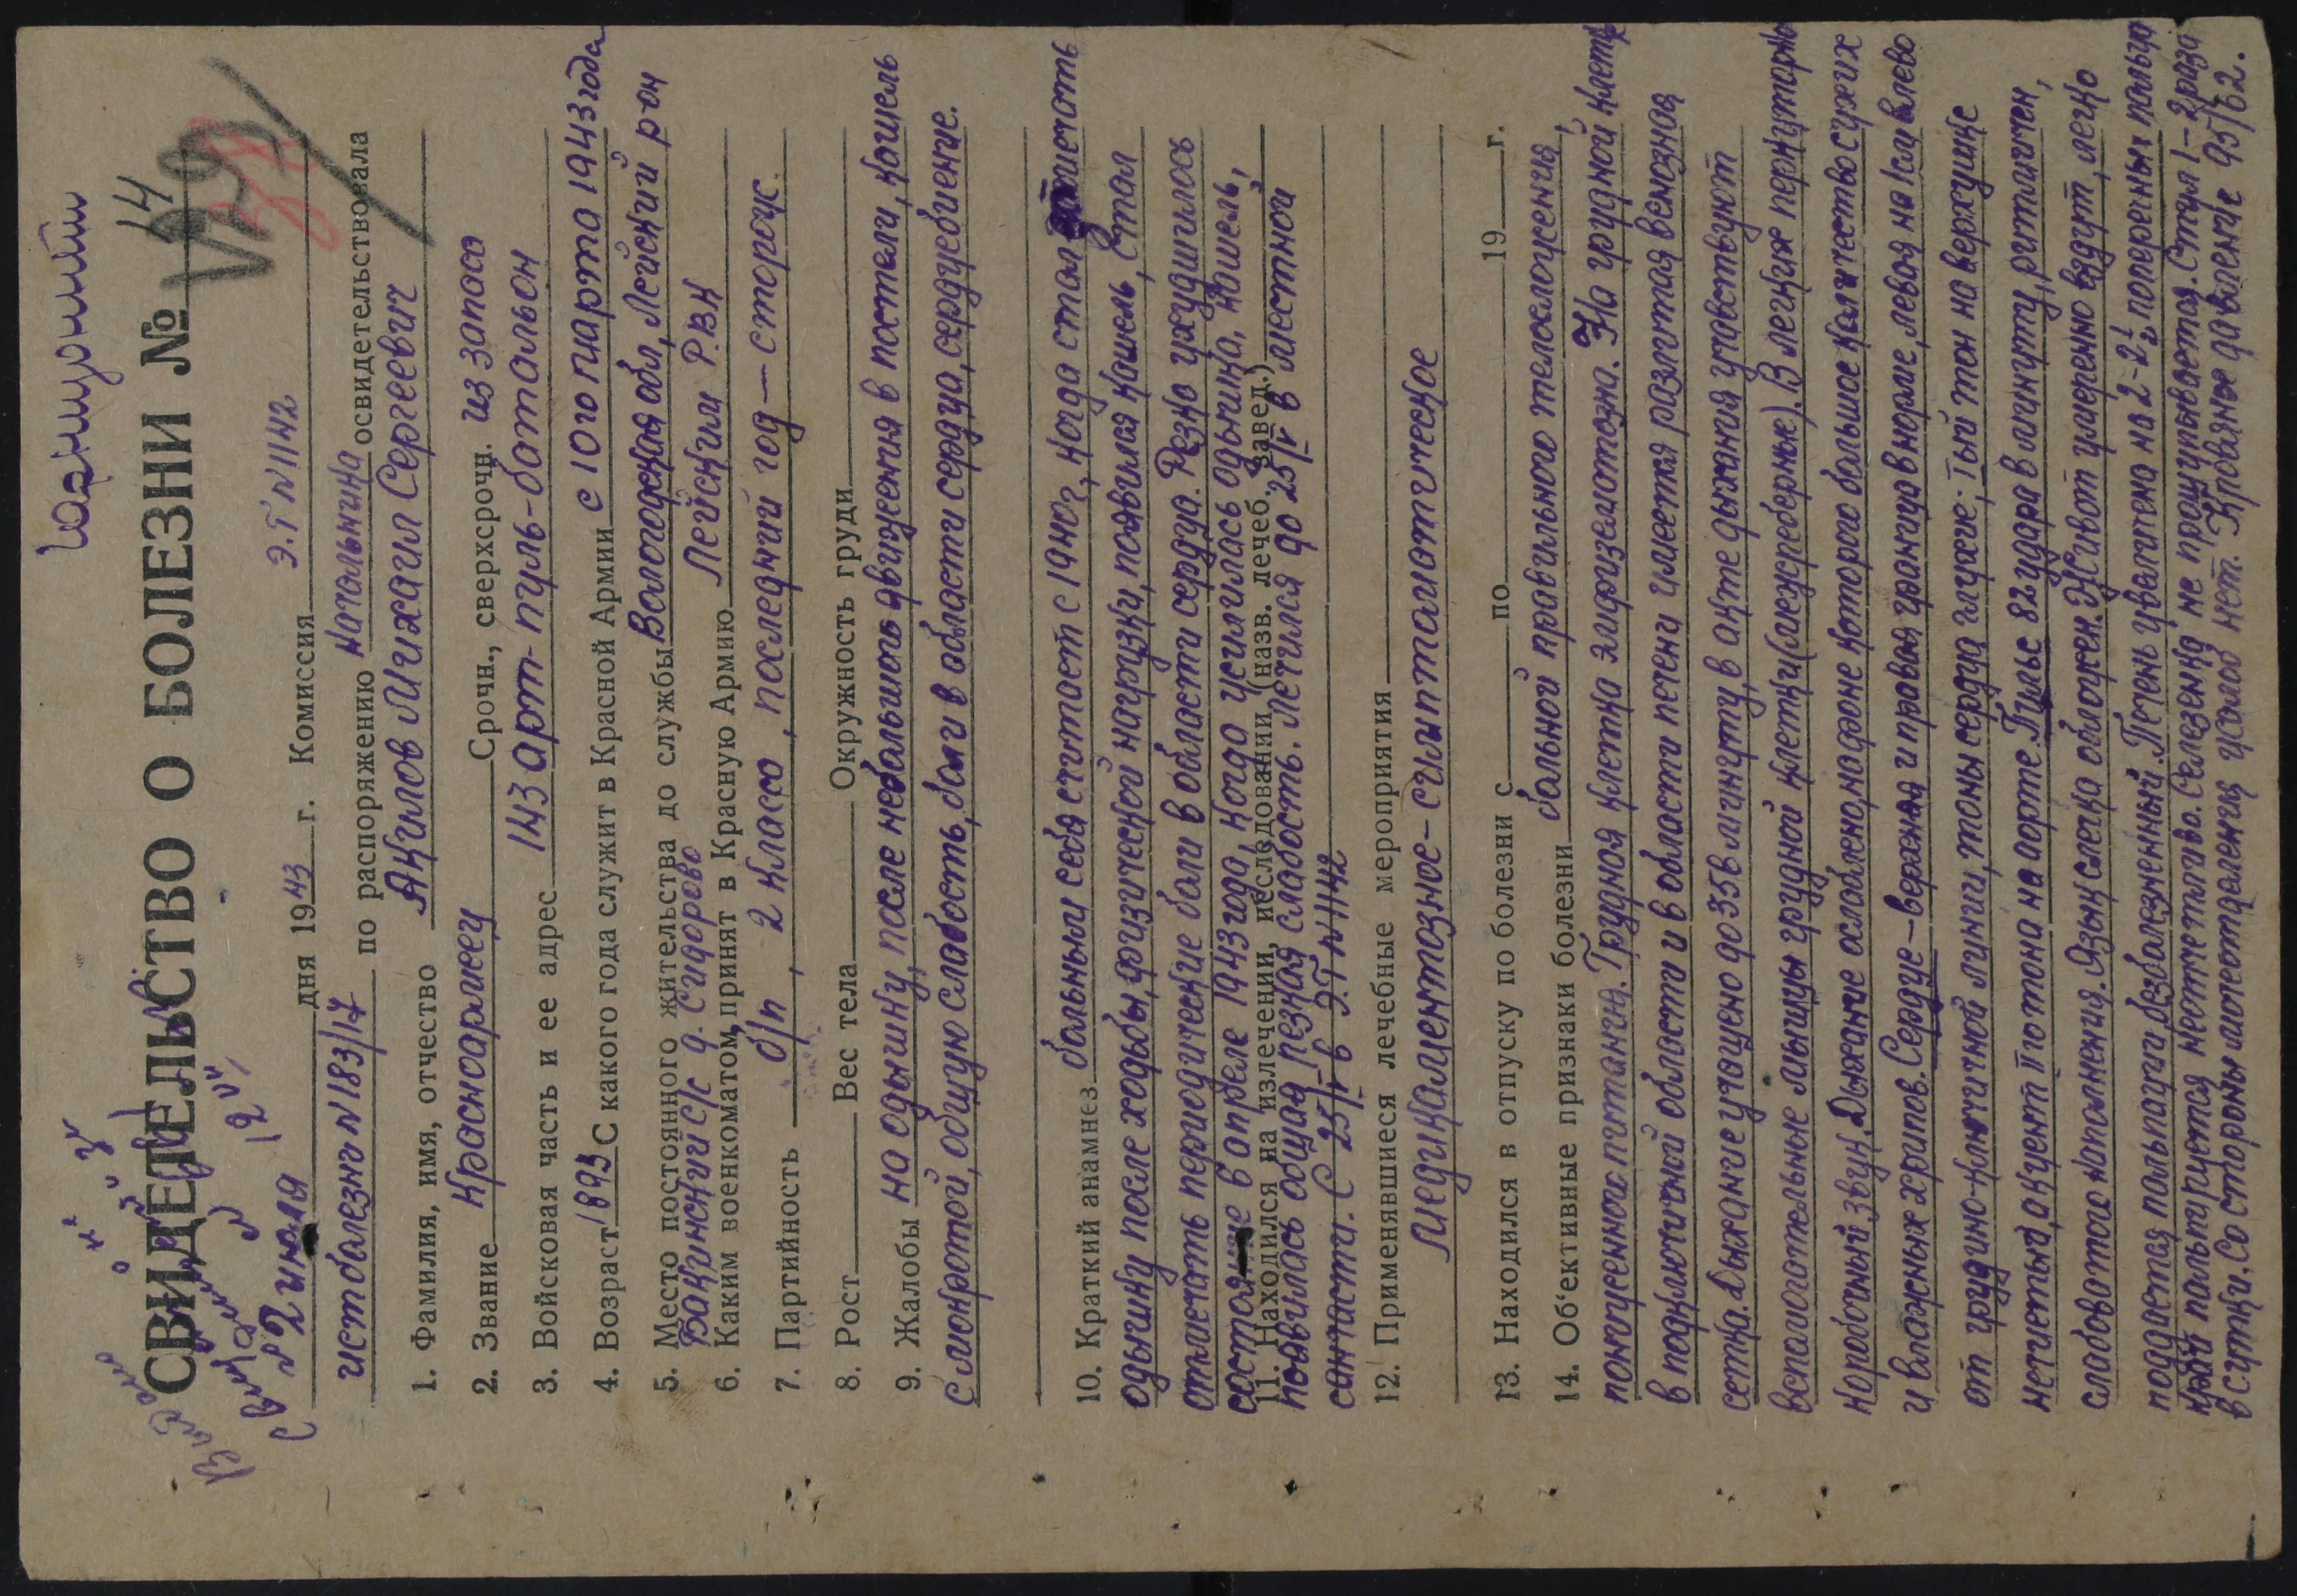 СВИДЕТЕЛЬСТВО О БОЛЕЗНИ № 14
729
2 июля дня 1943 г. Комиссия Э.Г N 1142
ист болезнь N 183/17 по распоряжению начальника освидетельствовала
1. Фамилия, имя, отчество Акилов Михаил Сергеевич
2. Звание Красноармеец Срочн., сверхсрочн. из запаса
3. Войсковая часть и ее адрес 143 арт-пуль-батальон
4. Возраст 1893 С какого года служит в Красной Армии с 10го марта 1943 года
5. Место постоянного жительства до службы Вологодская обл, Лейский р-он
Бакринский с/с д. Сидорово
6. Каким военкоматом принят в Красную Армию Лейским Р.ВК
7. Партийность б/п, 2 класса, последний год — сторож.
8. Рост Вес тела Окружность груди
9. Жалобы на одышку, после небольшого движения в постели, кашель
с мокротой, общую слабость, боли в области сердца, сердцебиение.
10. Краткий анамнез больным себя считает с 1940 г, когда стал отмечать
одышку после ходьбы, физической нагрузки, появился кашель, стал
отмечать периодические боли в области сердца. Резко ухудшилось
состояние в апреле 1943 года, когда усилилась одышка, кашель,
11. Находился на излечении, исследовании (назв. лечеб. завед.)
появилась общая резкая слабость. Лечился до 25/V в местной
санчасти. С 25/V- в Э.Г N 1142
12. Применявшиеся лечебные мероприятия
Медикаментозное - симптоматическое
13. Находился в отпуску по болезни с по 19 г.
14. Об'ективные признаки болезни больной правильного телосложения,
пониженного питания. Грудная клетка эмфизематозна. На грудной клетке
в подключичной области и в области печени имеется развитая венозная
сетка. Дыхание учащено до 35 в минуту, в акте дыхания участвуют
вспомогательные мышцы грудной клетки (межреберные). В легких перкуторно
коробочный звук. Дыхание ослаблено, на фоне которого большое количество сухих
и влажных хрипов. Сердце — верхняя и правая граница в норме, левая на 1 см влево
от грудино-ключичной линии, тоны сердца глухие; Iый тон на верхушке
нечистый, акцент II го тона на аорте. Пульс 82 удара в минуту, ритмичен,
слабоватого наполнения. Язык слегка обложен. Живот умеренно вздут, легко
поддается пальпации, безболезненный. Печень увеличена на 2-2½ поперечных пальца
край пальпируется неотчетливо. Селезенка не прощупывается. Стул 1-2 раза
в сутки. Со стороны мочеотделения жалоб нет. Кровяное давление 95/62.